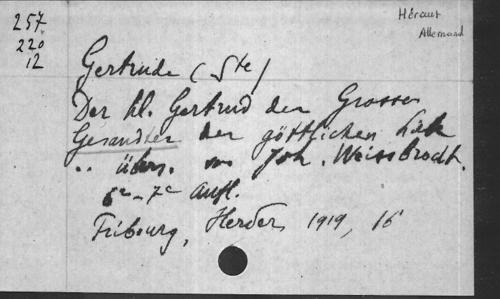 257.
220
12
Héraut
Allemand
Gertrude (Ste)
Der hl. Gertrud der Grossen
Gesandter der göttlichen Liebe
.. übers. von Joh. Weissbrodt.
6e - 7e Aufl.
Fribourg, Herder, 1919, 16°